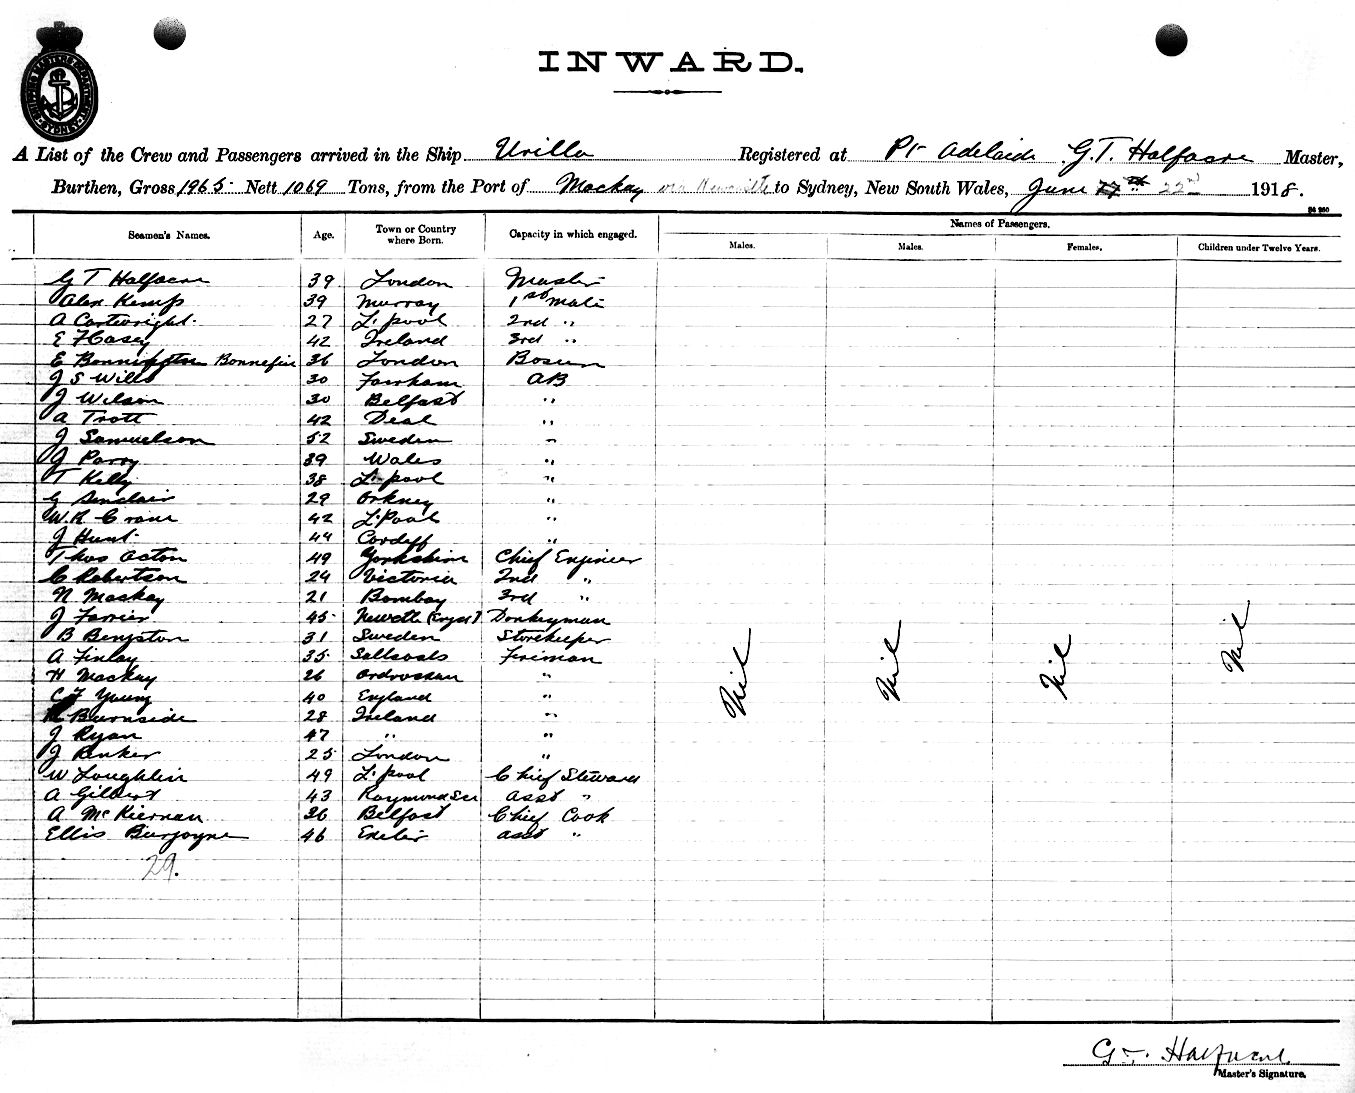 SHIPPING MASTERS DEPARTMENT SYDNEY
INWARD.
A List of the Crew and Passengers arrived in the Ship Urilla Registered at Pt Adelaide G.T. Halfacre Master,
Burthen, Gross 1965 Nett 1069 Tons, from the Port of Mackay via Newcastle to Sydney, New South Wales, June 22nd 1918.
Seamen's Names. Age. Town or Country where Born. Capacity in which engaged. Names of Passengers.
Males. Males. Females. Children under Twelve Years.
G T Halfacre 39 London Master
Alex Kemp 39 Murray 1st Mate
A Cartwright 27 L'pool 2nd "
E F Casey 42 Ireland 3rd "
E Bonnington 36 London Bosun
J S Wills 30 Fareham AB
J Wilson 30 Belfast "
A Trott 42 Deal "
J Samuelson 52 Sweden "
J Parry 39 Wales "
T Kelly 38 L'pool "
G Sinclair 29 Orkney "
W.R. Crane 42 L'Pool "
J Hunt 44 Cardiff "
Thos Acton 49 Yorkshire Chief Engineer
C Robertson 24 Victoria 2nd "
N Mackay 21 Bombay 3rd "
J Farrier 45 Donkeyman
B Bengston 31 Sweden Storekeeper
A Finlay 35 Fireman
H Mackay 26 "
C F Young 40 England "
Burnside 28 Ireland "
J Ryan 47 " "
J 25 London "
W Loughlin 49 L'pool Chief Steward
A Gilbert 43 Asst "
A McKiernan 36 Belfast Chief Cook
Ellis Burgoyne 46 Exeter asst "
Nil Nil Nil Nil
29.
G.T. Halfacre
Master's Signature.